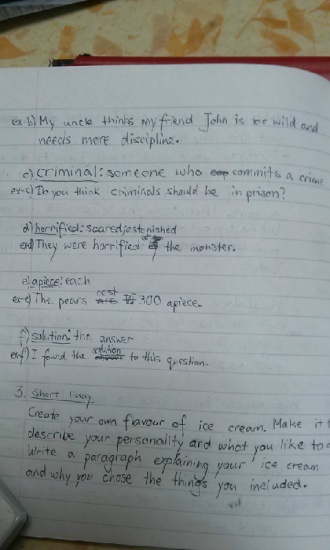 ex-b) My uncle thinks my friend John is too wild and
needs more discipline.
c) criminal: someone who commits a crime
ex-c) Do you think criminals should be in prison?
d) horrified: scared/astonished
exd) They were horrified at the monster.
e) apiece: each
ex-e) The pears cost 300 apiece.
f) solution: the answer
exf) I found the solution to this question.
3. Short Essay
Create your own flavour of ice cream. Make it
describe your personality and what you like to
Write a paragraph explaining your ice cream
and why you chose the things you included.